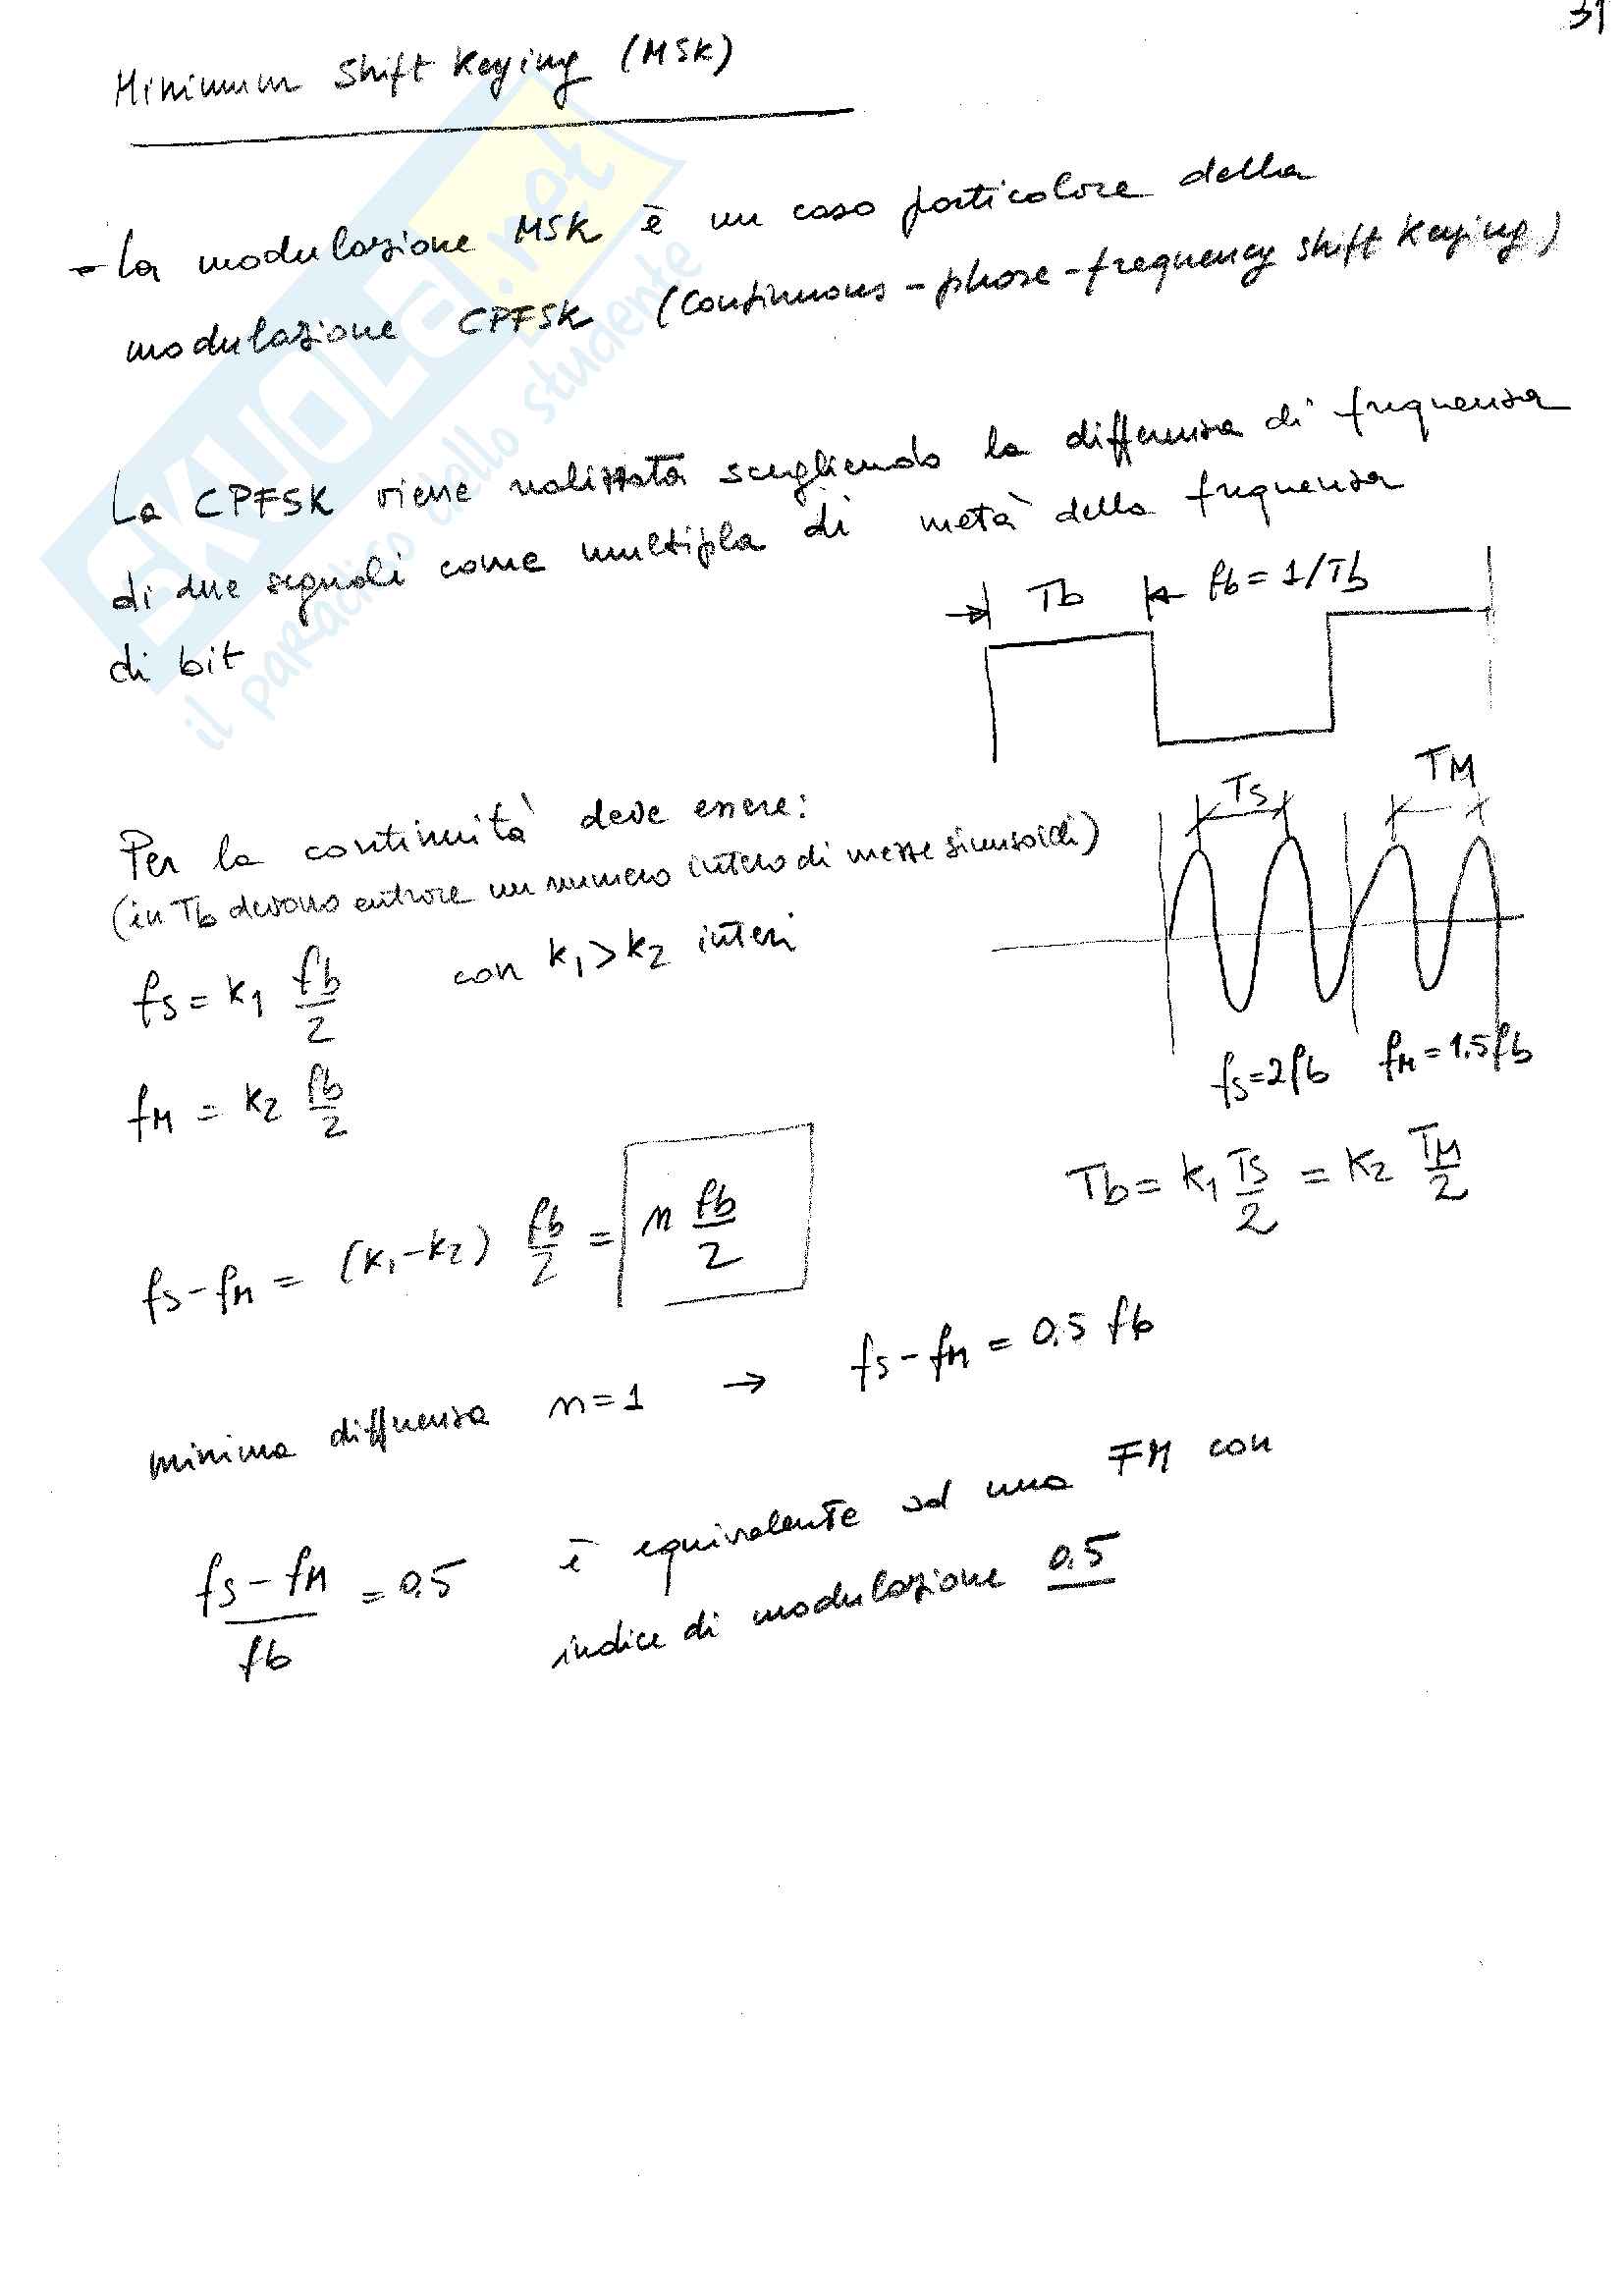 31
Minimum Shift Keying (MSK)
- La modulazione MSK è un caso particolare della
modulazione CPFSK (Continuous-phase-frequency shift keying)
La CPFSK viene realizzata scegliendo la differenza di frequenza
di due segnali come multipla di metà della frequenza
di bit
Tb fb = 1/Tb
TS TM
Per la continuità deve essere:
(in Tb devono entrare un numero intero di mezze sinusoidi)
fS = K1 fb/2 con K1 > K2 interi
fM = K2 fb/2
fS=2fb fM=1.5fb
Tb = K1 TS/2 = K2 TM/2
fS - fM = (K1-K2) fb/2 = n fb/2
minima differenza n=1 → fS - fM = 0.5 fb
fS - fM / fb = 0.5 è equivalente ad una FM con
indice di modulazione 0.5
SKUOLA.net
il paradiso dello studente